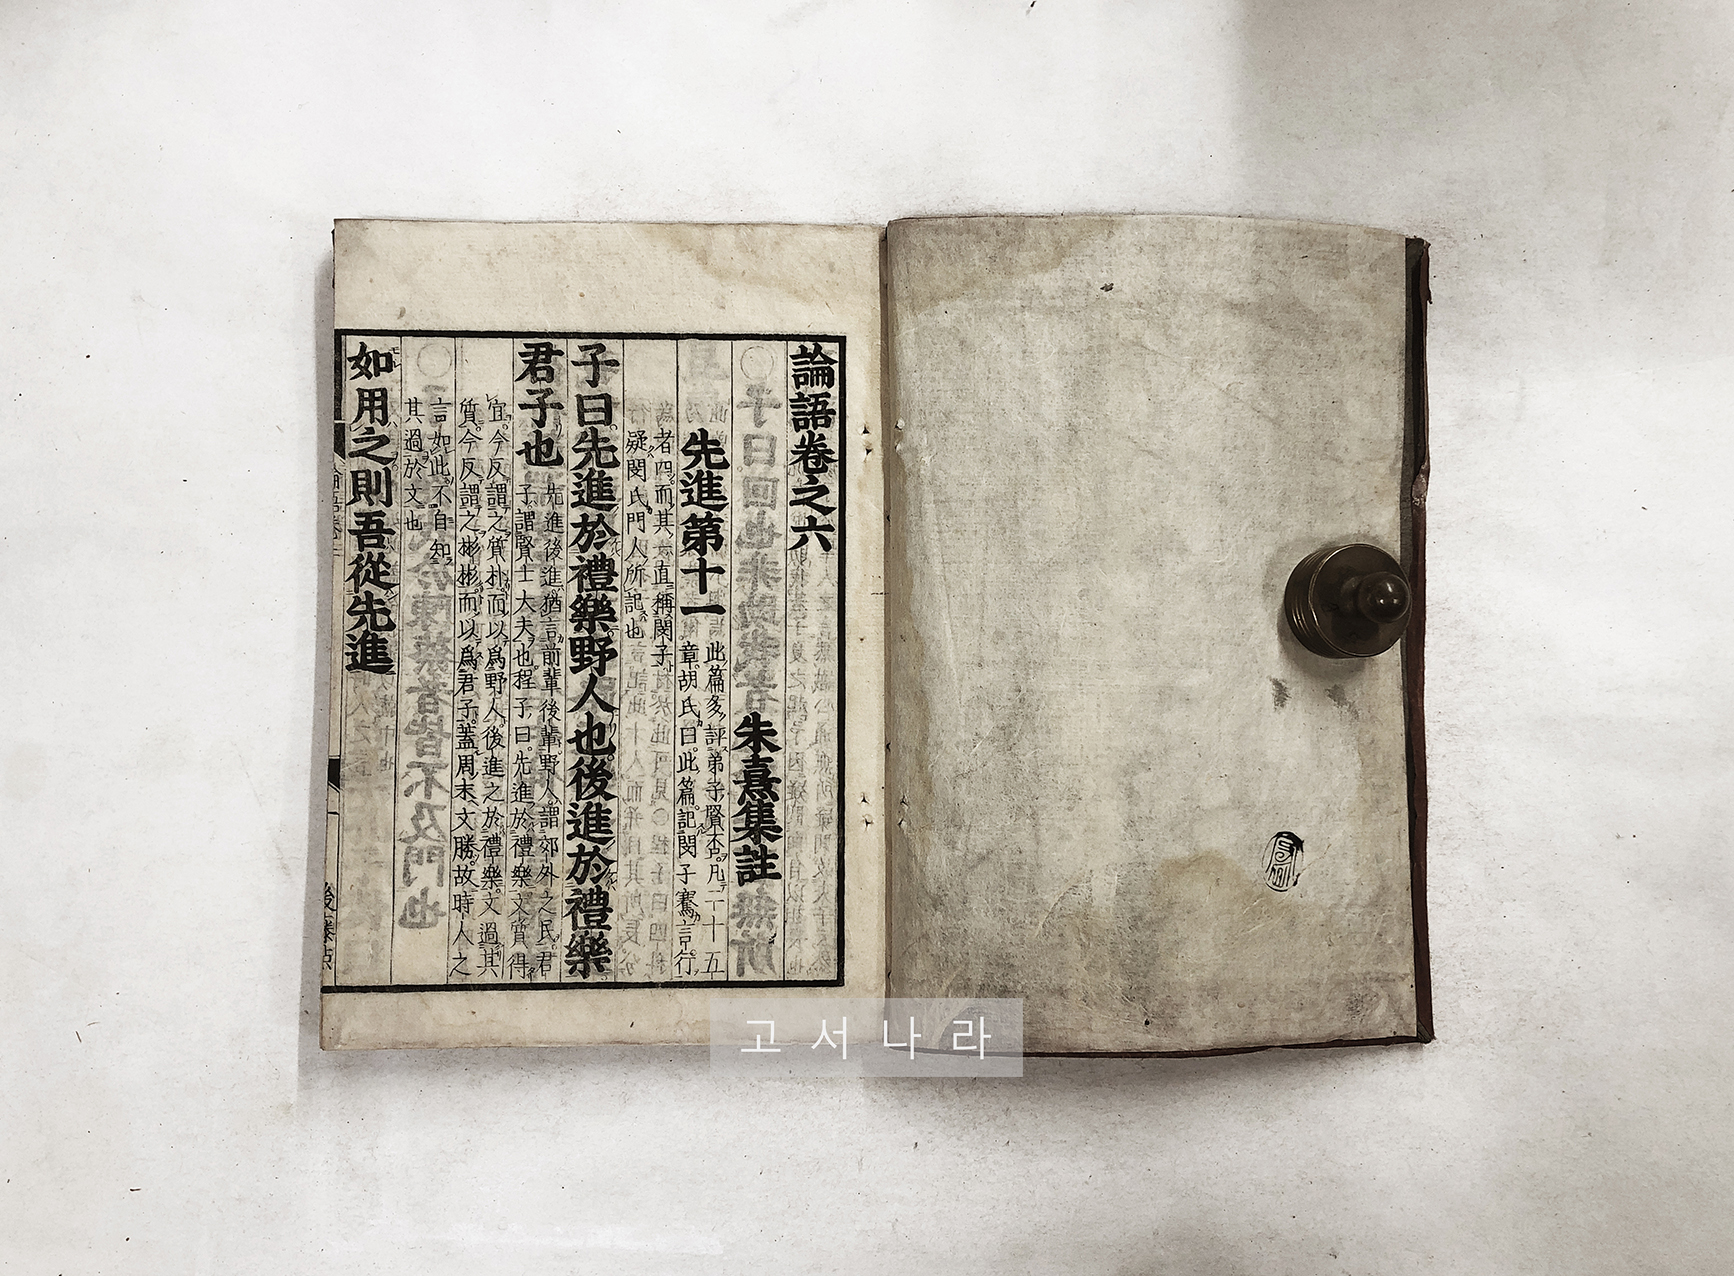 論語卷之六
朱熹集註
先進第十一
此篇多評弟子賢否凡二十五
章胡氏曰此篇記閔子騫言行
者四而其一直稱閔子
疑閔氏門人所記也
子曰先進於禮樂野人也後進於禮樂
君子也
先進後進猶言前輩後輩野人謂郊外之民君
子謂賢士大夫也程子曰先進於禮樂文質得
宜今反謂之質朴而以爲野人後進之於禮樂文過其
質今反謂之彬彬而以爲君子蓋周末文勝故時人之
言如此不自知
其過於文也
如用之則吾從先進
後藤点
고서나라